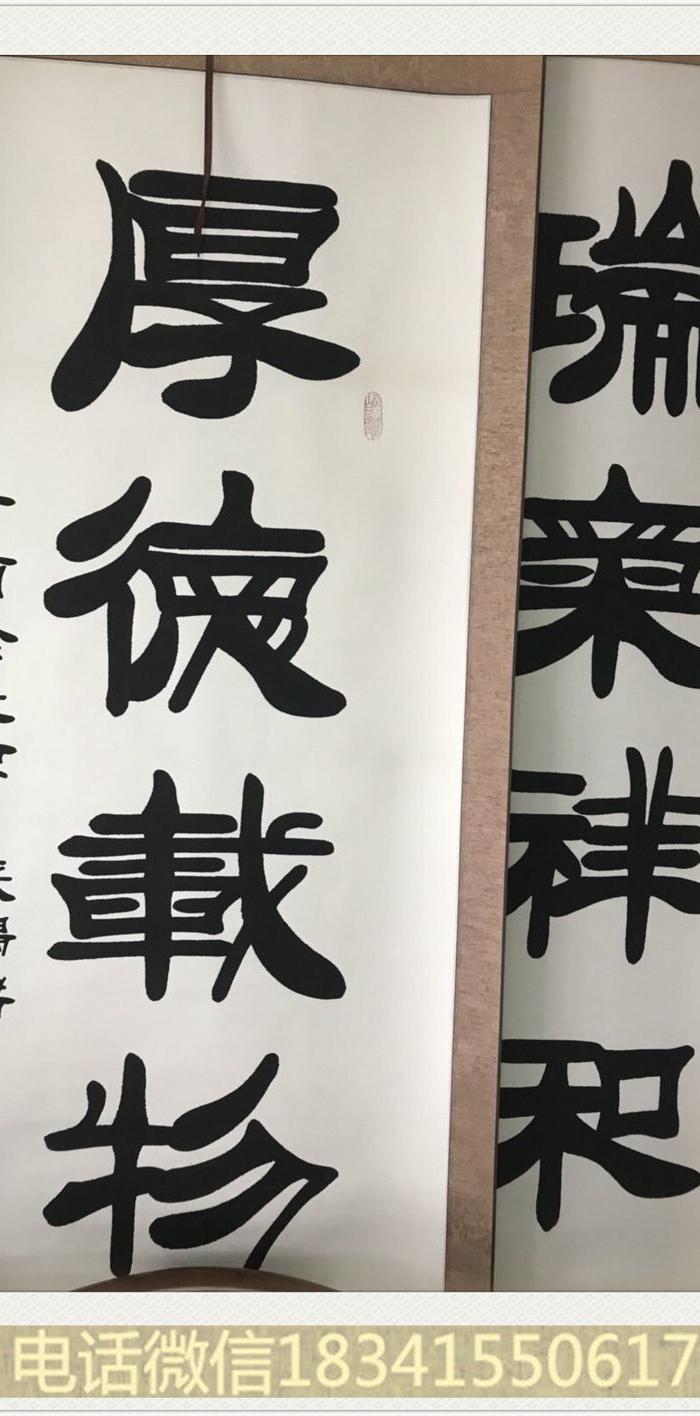 瑞祥和
厚德載物
电话微信18341550617